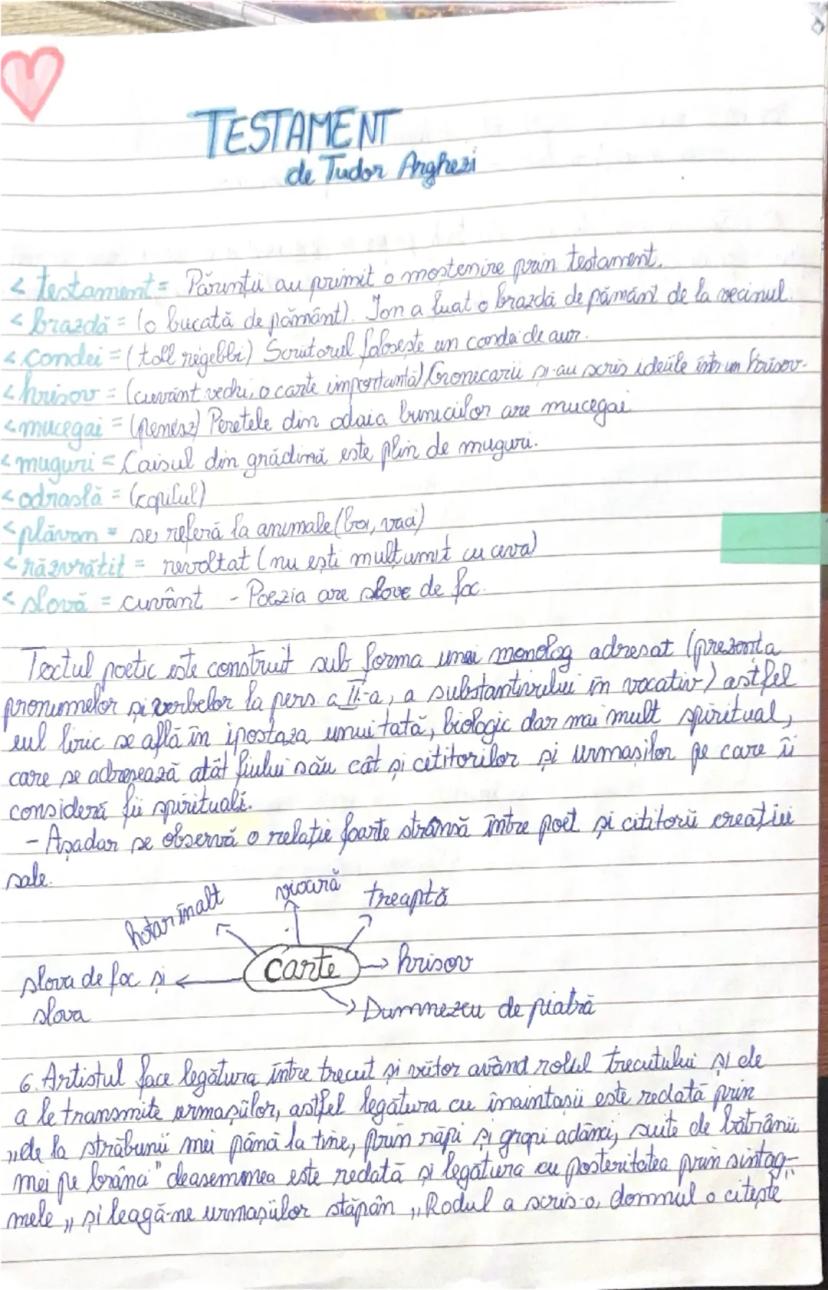 TESTAMENT
de Tudor Arghezi
< testament = Părinții au primit o moștenire prin testament.
< brazdă = (o bucată de pământ). Ion a luat o brazdă de pământ de la vecinul.
< condei = (toll régebbi) Scriitorul folosește un condei de aur.
< hrisov = (cuvânt vechi, o carte importantă) Cronecarii și-au scris ideiile într-un hrisov.
< mucegai = (penész) Peretele din odaia bunicilor are mucegai
< muguri = Caisul din grădină este plin de muguri.
< odraslă = (copilul)
< plăvan = se referă la animale (boi, vaci)
< răzvrătit = revoltat (nu ești multumit cu ceva)
< slovă = cuvânt - Poezia are slove de foc.
Textul poetic este construit sub forma unui monolog adresat (prezența
pronumelor și verbelor la pers a II-a, a substantivului în vocativ) astfel
eul liric se află în ipostaza unui tată, biologic dar mai mult spiritual,
care se adresează atât fiului său cât și cititorilor și urmașilor pe care îi
consideră fii spirituali.
- Așadar se observă o relație foarte strânsă între poet și cititorii creației
sale.
hotar înalt
vioară
treaptă
carte
hrisov
slova de foc și
slova
Dumnezeu de piatră
6. Artistul face legătura între trecut și viitor având rolul trecutului și de
a le transmite urmașiilor, astfel legătura cu înaintașii este redată prin
„de la străbunii mei până la tine, prin râpi și gropi adânci, suite de bătrânii
mei pe brânci" deasemenea este redată și legătura cu posteritatea prin sintag-
mele „ și leagă-ne urmașiilor stăpân „Rodul a scris-o, domnul o citește